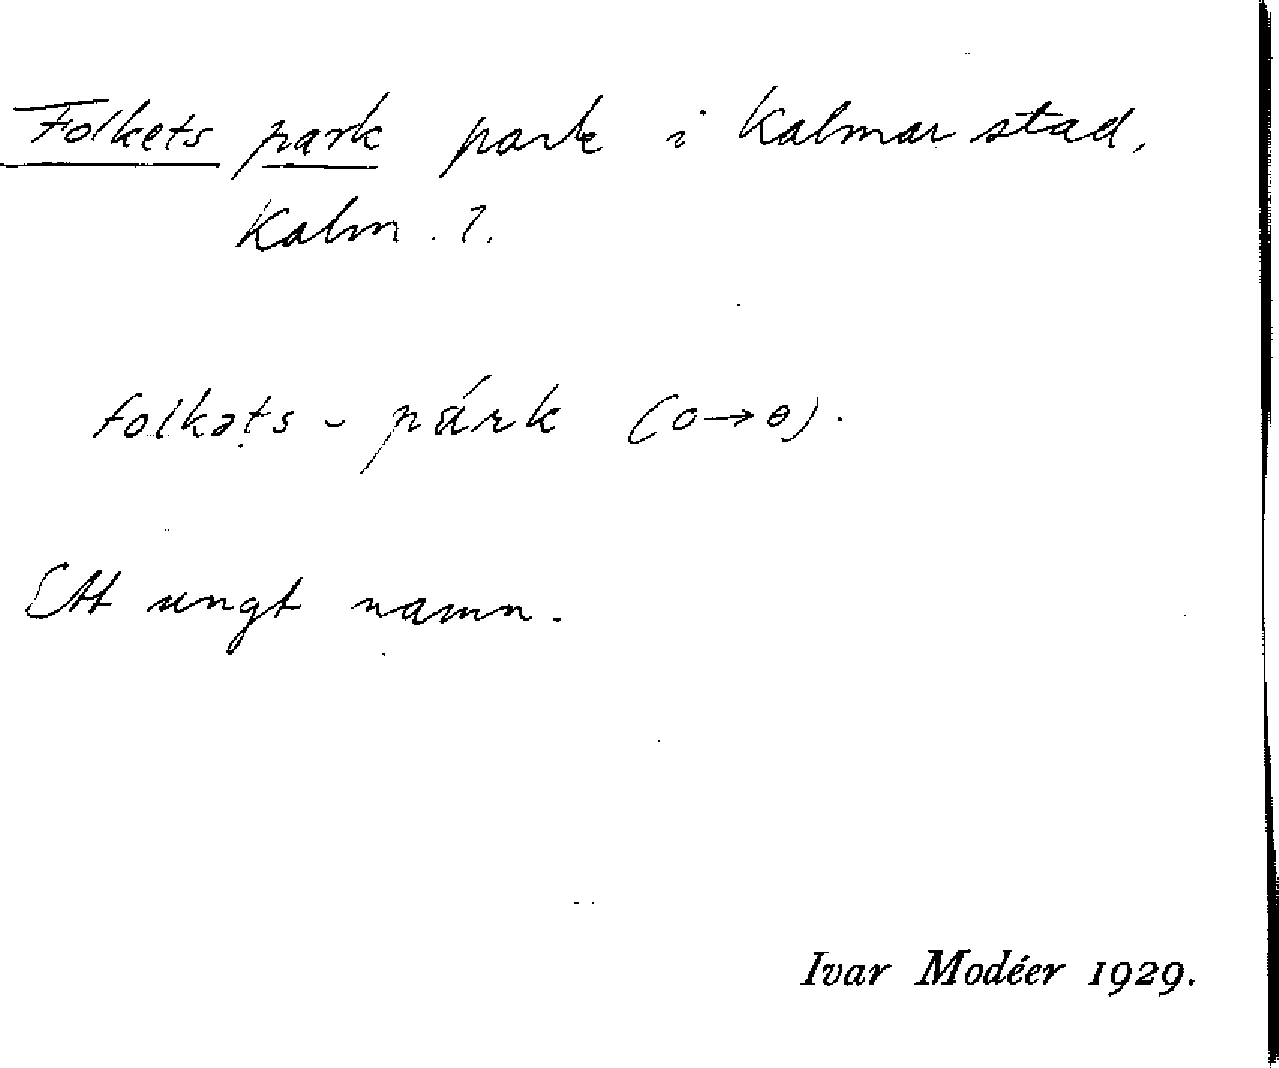 Folkets park park i Kalmar stad,
Kalm. l.
folkəts-párk (o→ɵ).
Ett ungt namn.
Ivar Modéer 1929.